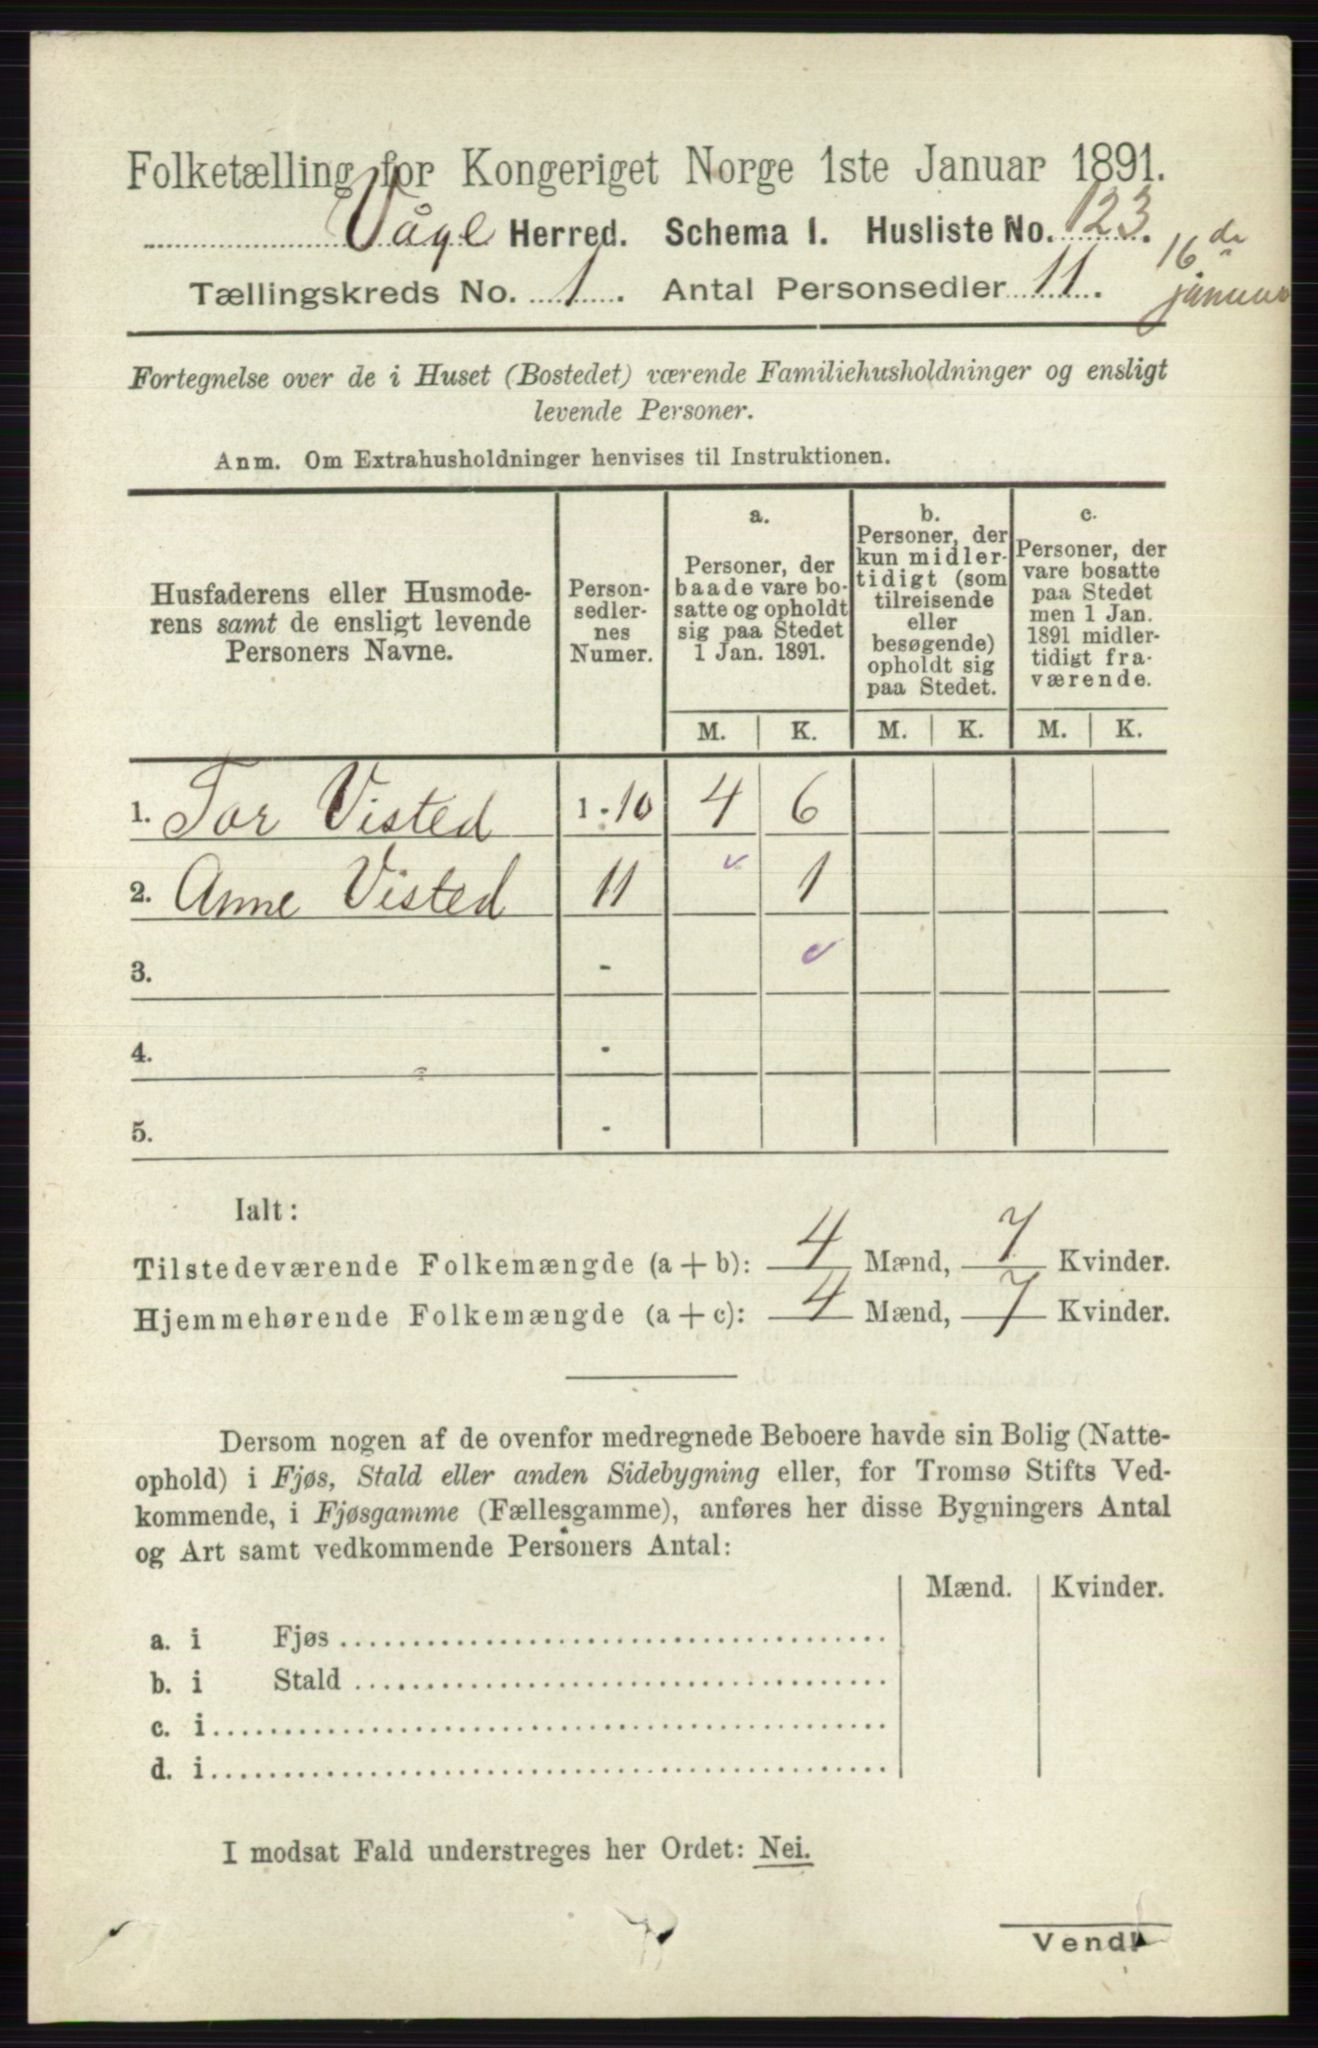 Folketælling for Kongeriget Norge 1ste Januar 1891.
Vågå Herred. Schema 1. Husliste No. 123.
16de januar
Tællingskreds No. 1. Antal Personsedler 11.
Fortegnelse over de i Huset (Bostedet) værende Familiehusholdninger og ensligt
levende Personer.
Anm. Om Extrahusholdninger henvises til Instruktionen.
Husfaderens eller Husmode-
rens samt de ensligt levende
Personers Navne.
Person-
sedler-
nes
Numer.
a.
Personer, der
baade vare bo-
satte og opholdt
sig paa Stedet
1 Jan. 1891.
b.
Personer, der
kun midler-
tidigt (som
tilreisende
eller
besøgende)
opholdt sig
paa Stedet.
c.
Personer, der
vare bosatte
paa Stedet
men 1 Jan.
1891 midler-
tidigt fra-
værende.
M. K. M. K. M. K.
1. Tor Visted 1-10 4 6
2. Anne Visted 11 1
3. -
4. -
5. -
Ialt:
Tilstedeværende Folkemængde (a + b): 4 Mænd, 7 Kvinder.
Hjemmehørende Folkemængde (a + c): 4 Mænd, 7 Kvinder.
Dersom nogen af de ovenfor medregnede Beboere havde sin Bolig (Natte-
ophold) i Fjøs, Stald eller anden Sidebygning eller, for Tromsø Stifts Ved-
kommende, i Fjøsgamme (Fællesgamme), anføres her disse Bygningers Antal
og Art samt vedkommende Personers Antal:
Mænd. Kvinder.
a. i Fjøs
b. i Stald
c. i
d. i
I modsat Fald understreges her Ordet: Nei.
Vend!